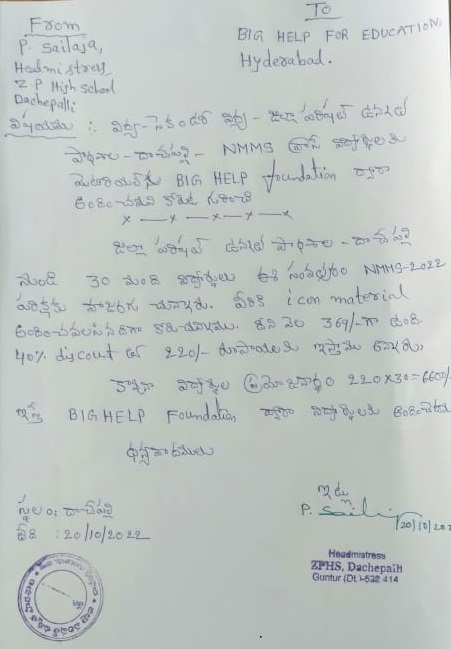 From
P. Sailaja,
Headmistress
Z P High School
Dachepalli
To
BIG HELP FOR EDUCATION,
Hyderabad.
విషయము :- విద్య - సెకండరీ విద్య - జిల్లా పరిషత్ ఉన్నత
పాఠశాల - దాచేపల్లి - NMMS విద్యార్థులకు
మెటీరియల్ను BIG HELP foundation ద్వారా
అందించమని కోరుట గురించి
x — x — x — x — x
జిల్లా పరిషత్ ఉన్నత పాఠశాల - దాచేపల్లి
నుండి 30 మంది విద్యార్థులు ఈ సంవత్సరం NMMS-2022
పరీక్షకు హాజరగు చున్నారు. వీరికి icon material
అందించవలసినదిగా కోరుచున్నాము. దీని వెల 369/- గా ఉంది
40% discout తో 220/- రూపాయలకు ఇస్తాము అన్నారు.
కావున విద్యార్థుల ప్రయోజనార్థం 220x30=6600/-
BIG HELP Foundation ద్వారా విద్యార్థులకు
ధన్యవాదములు
ఇట్లు
P. Sailaja
20/10/2022
స్థలం: దాచేపల్లి
తేది : 20/10/2022
Headmistress
ZPHS, Dachepalli
Guntur (Dt.)-522 414